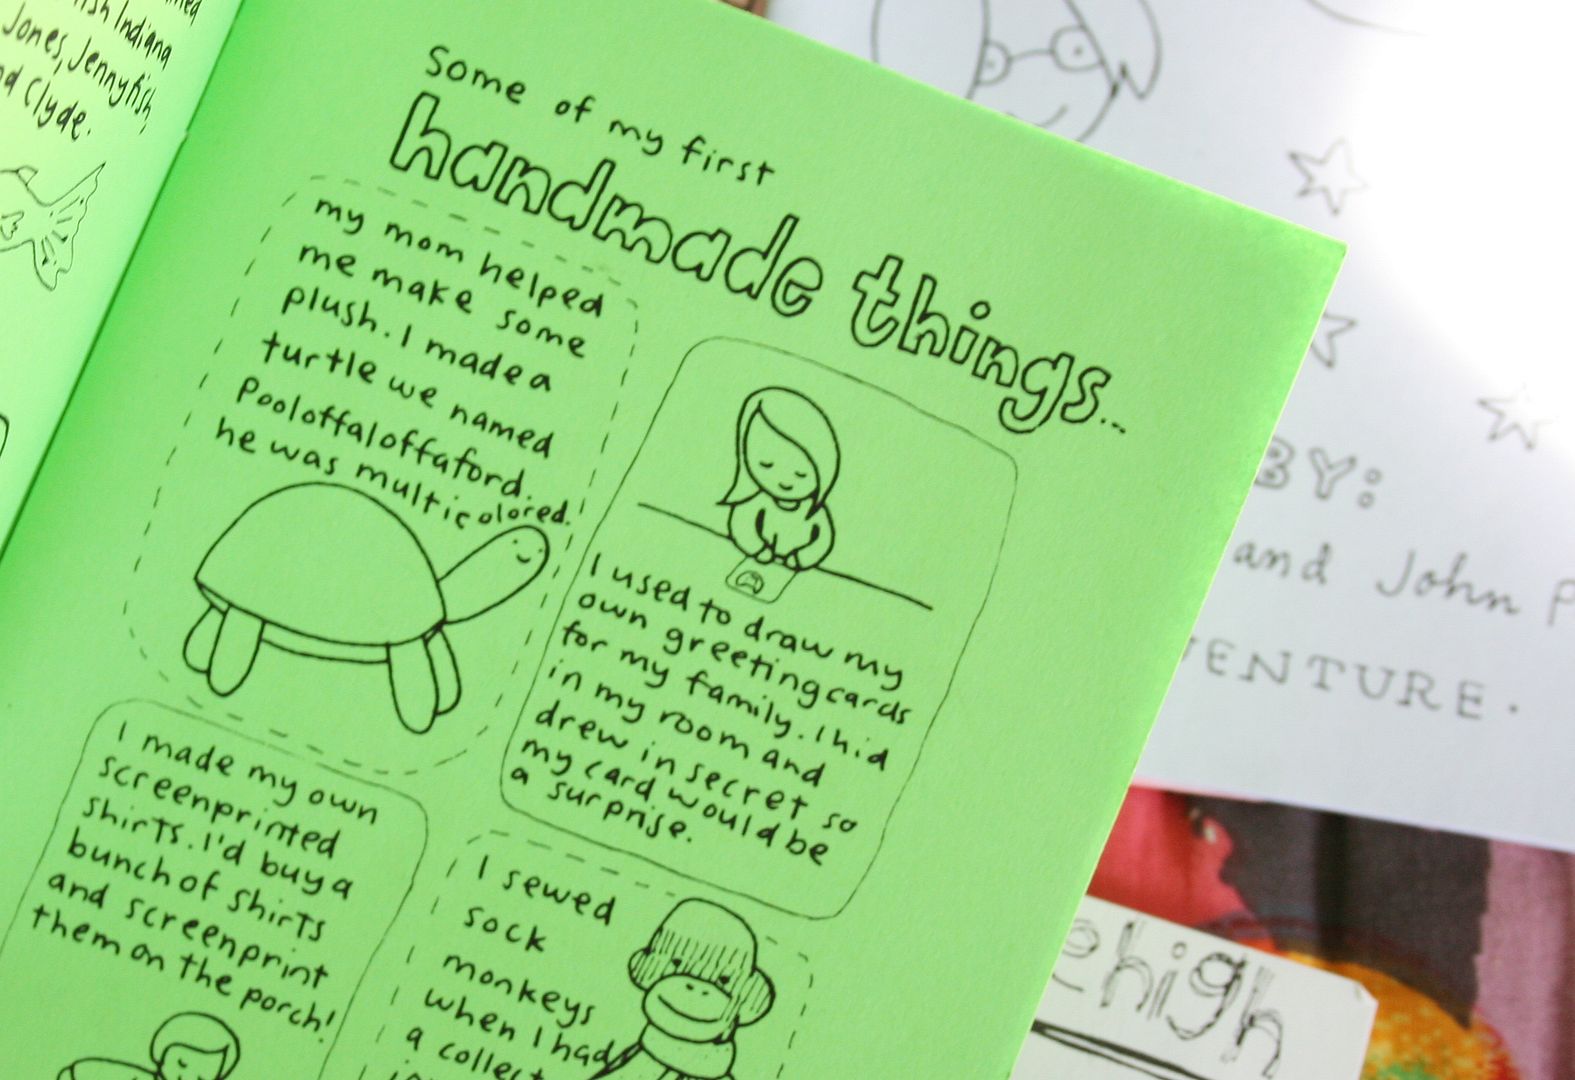 fish Indiana
Jones, Jennyfish,
Clyde.
Some of my first
handmade things...
my mom helped
me make some
plush. I made a
turtle we named
Pooloffaloffaford.
he was multicolored.
I used to draw my
own greeting cards
for my family. I hid
in my room and
drew in secret so
my card would be
a surprise.
I made my own
screenprinted
shirts. I'd buy a
bunch of shirts
and screenprint
them on the porch!
I sewed
sock
monkeys
when I had
a
BY:
and John